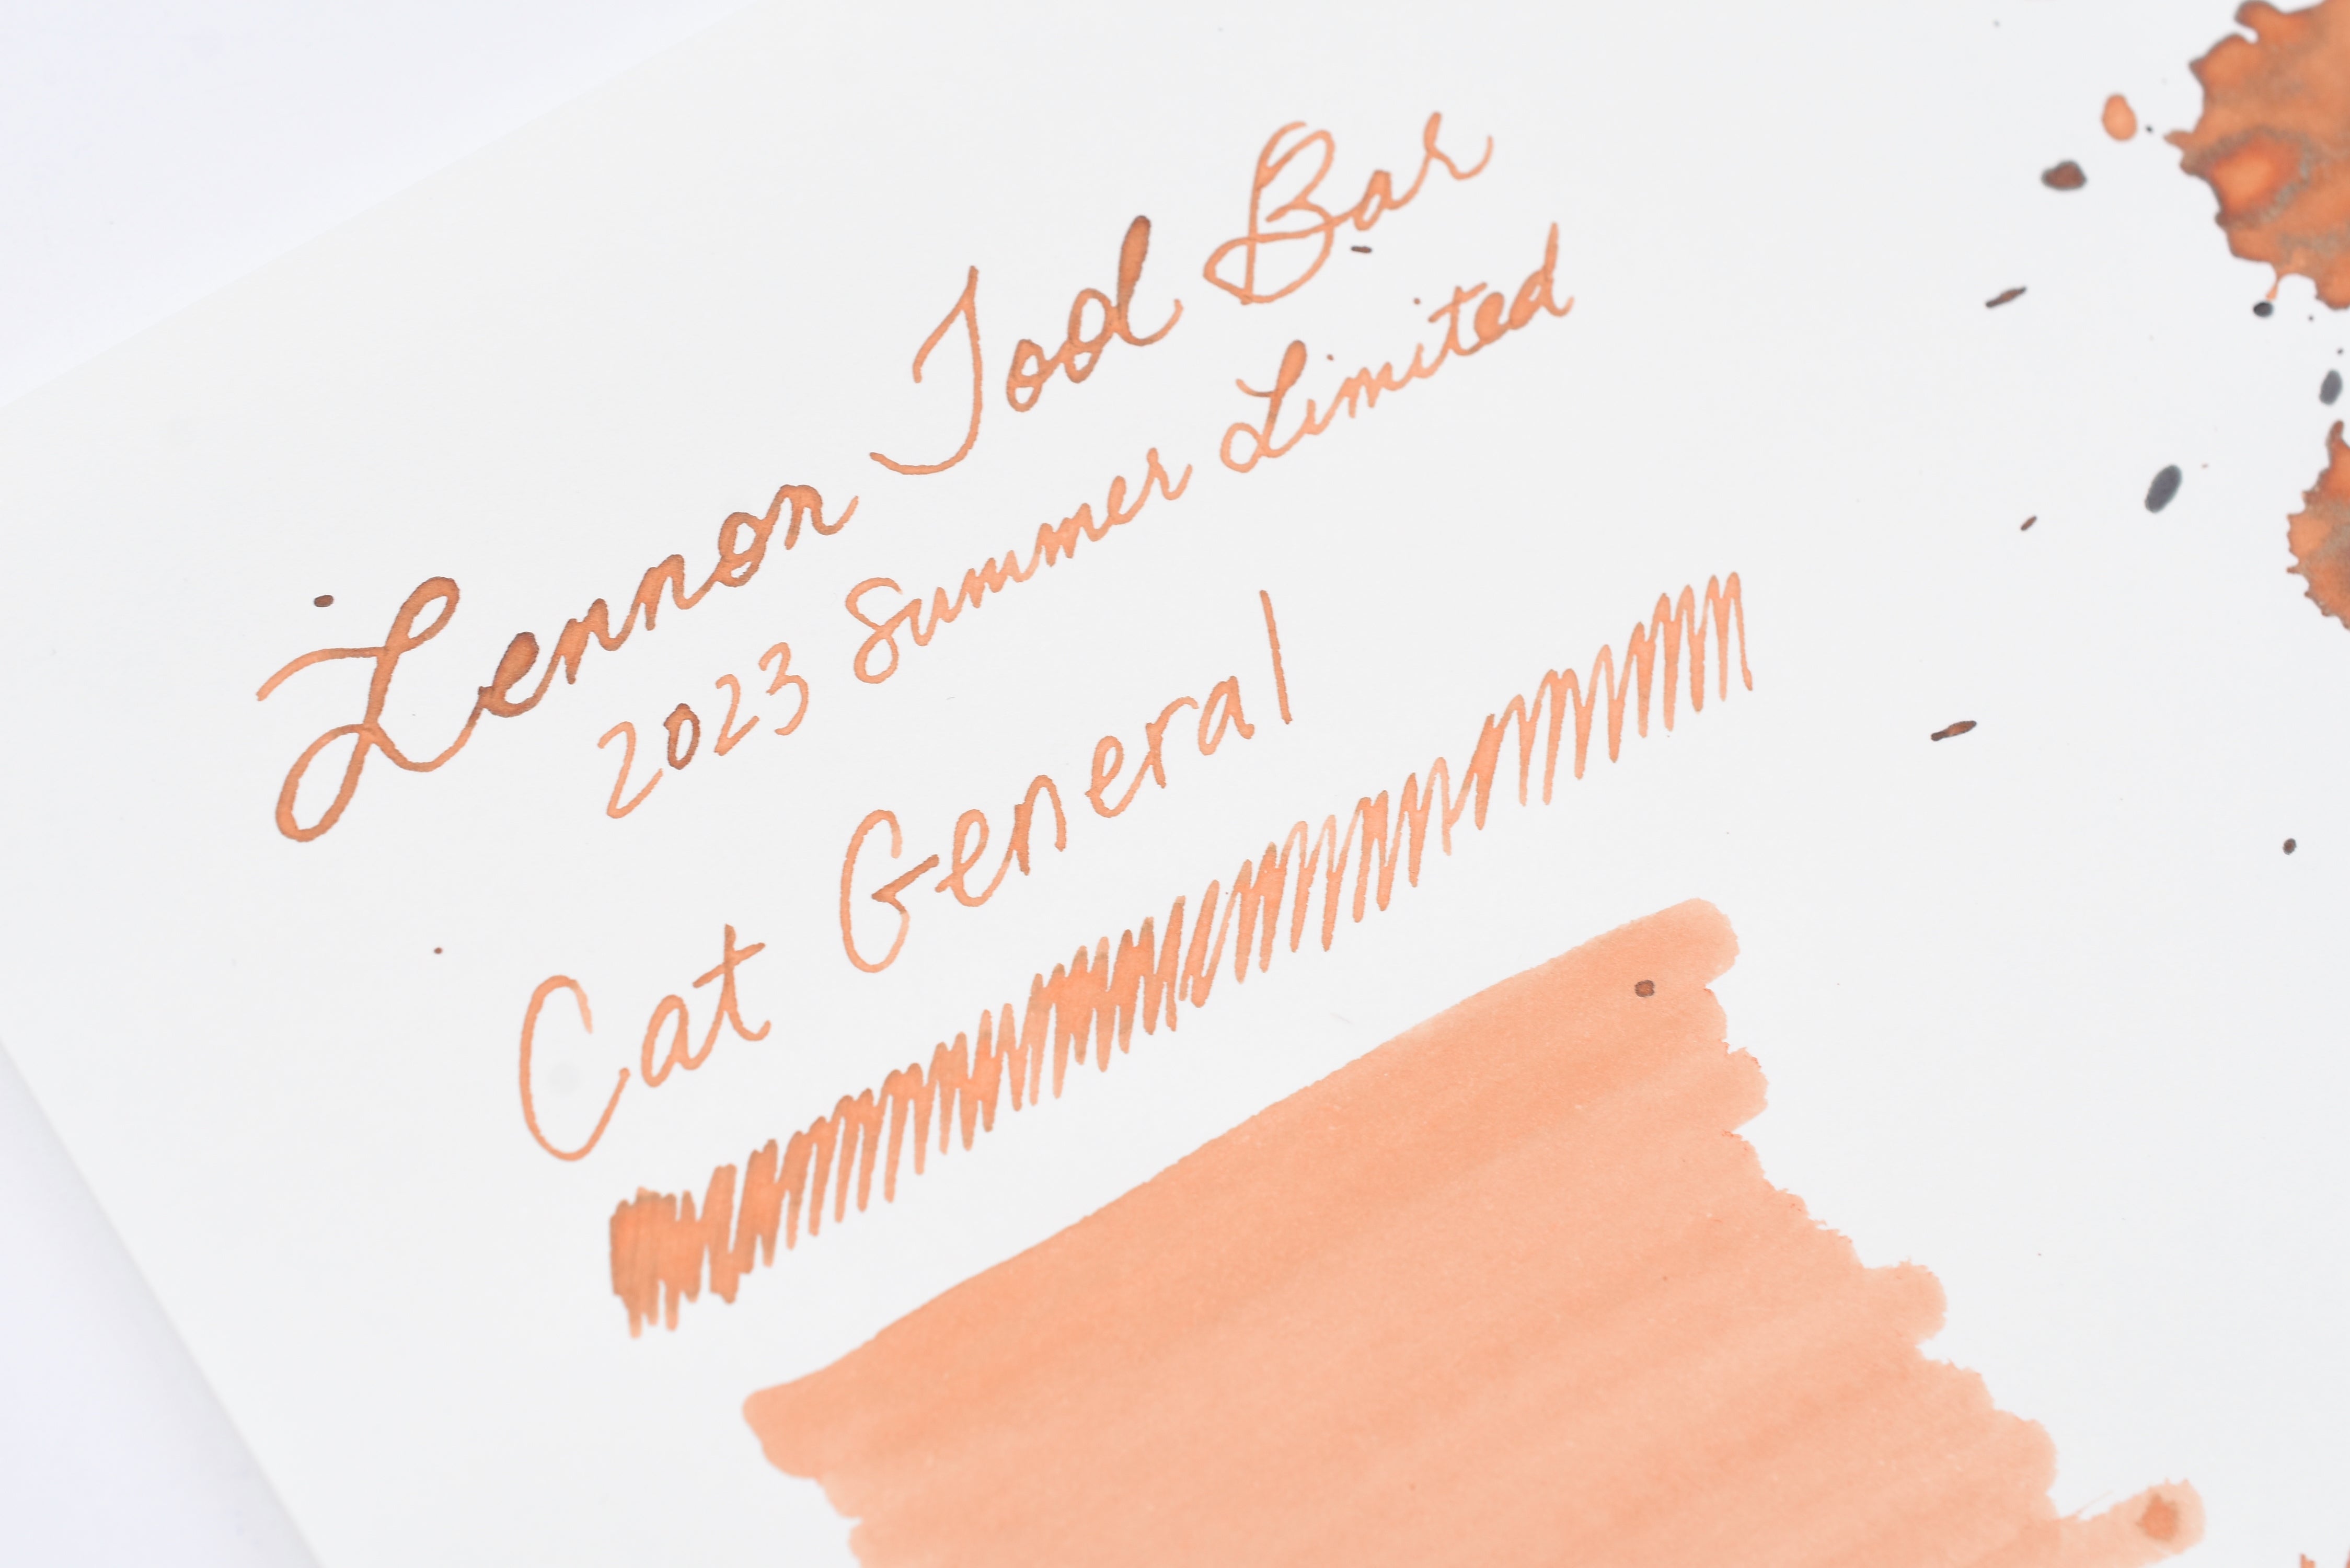 Lennon Tool Bar
2023 Summer Limited
Cat General